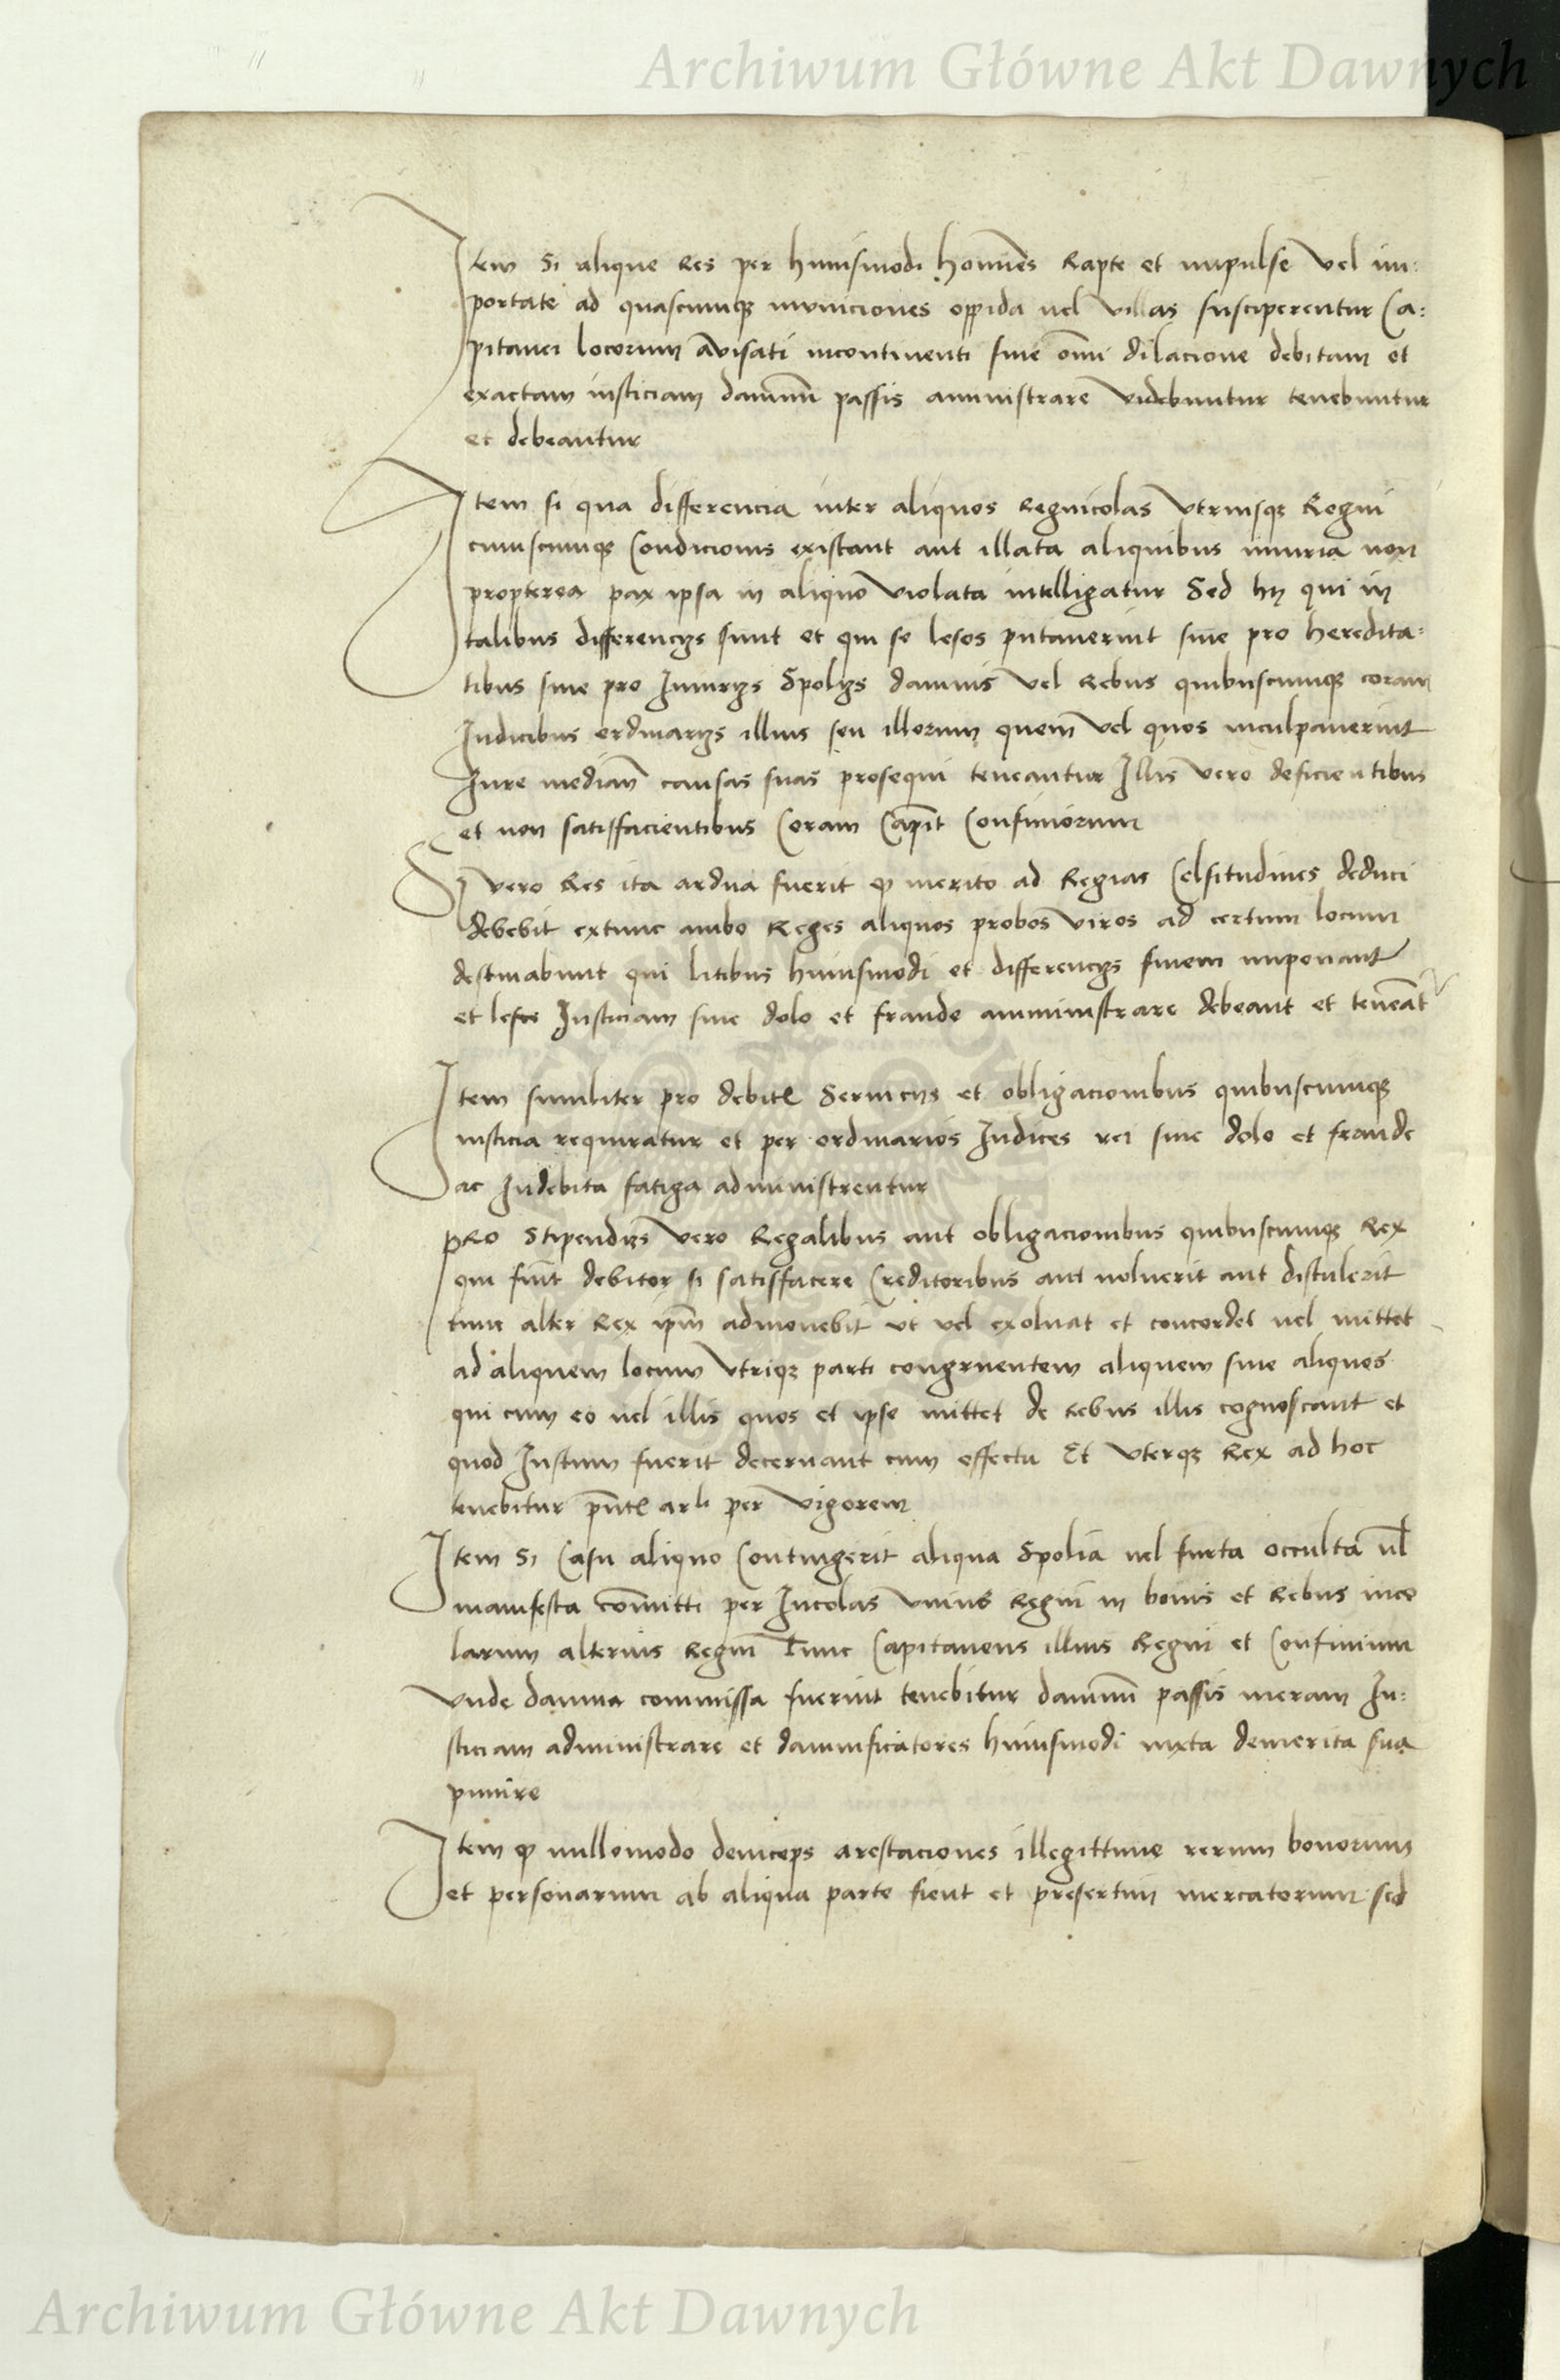 Archiwum Główne Akt Dawnych
Item Si alique Res per huiusmodi homīes Rapte et impulse vel im:
portate ad quascumqȝ municiones oppida uel villas susciperentur Ca:
pitanei locorum avisati incontinenti sine om̄i dilacione debitam et
exactam iusticiam damnū passis aministrare videbuntur tenebuntur
et debeantur
Item si qua differencia inter aliquos Regnicolas vtriusqȝ Regni
cuiuscumqȝ Condicionis existant aut illata aliquibus iniuria non
propterea pax ipsa in aliquo violata intelligatur Sed hij qui in
talibus differencijs sunt et qui se lesos putauerint siue pro heredita:
tibus siue pro Iniurijs Spolijs damnis vel Rebus quibuscumqȝ coram
Iudicibus ordinarijs illius seu illorum quem vel quos inculpauerint
Iure median̄ causas suas prosequi teneantur Illis vero deficientibus
et non satisfacientibus Coram Capit̄ Confiniorum
Si vero Res ita ardua fuerit ꝙ merito ad Regias Celsitudines deduci
debebit extunc ambo Reges aliquos probos viros ad certum locum
destinabunt qui litibus huiusmodi et differencijs finem imponant
et lesis Iusticiam sine dolo et fraude amministrare debeant et teneāt
Item similiter pro debitꝭ Seruicijs et obligacionibus quibuscumqȝ
iusticia requiratur et per ordinarios Iudices rei sine dolo et fraude
ac Indebita fatiga administrentur
pRo Stipendijs vero Regalibus aut obligacionibus quibuscumqȝ Rex
qui fuīt debitor si satisfacere Creditoribus aut noluerit aut distulerit
tunc alter Rex ip̄m admonebit ut vel exoluat et concordet uel mittet
ad aliquem locum vtriqȝ parti congruentem aliquem siue aliquos
qui cum eo uel illis quos et ipse mittet de Rebus illis cognoscant et
quod Iustum fuerit decernant cum effectu Et vterqȝ Rex ad hoc
tenebitur pn̄tꝭ arli per vigorem
Item Si Casu aliquo Contingerit aliqua Spolia uel furta occulta ul̄
manifesta com̄itti per Incolas vnius Regni in bonis et Rebus inco
larum alterius Regni Tunc Capitaneus illius Regni et Confinium
vnde damna commissa fuerint tenebitur damnū passis meram Iu:
sticiam administrare et damnificatores huiusmodi iuxta demerita sua
punire
Item ꝙ nullomodo deinceps arestaciones illegittime rerum bonorum
et personarum ab aliqua parte fient et presertim mercatorum sed
Archiwum Główne Akt Dawnych